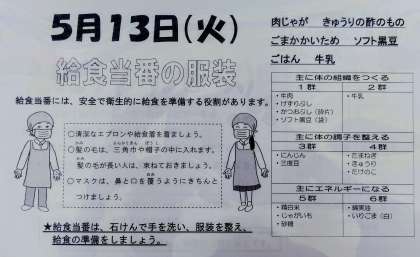 5月13日(火)
給食当番の服装
給食当番には、安全で衛生的に給食を準備する役割があります。
○清潔なエプロンや給食着を着ましょう。
○髪の毛は、三角巾や帽子の中に入れます。
髪の毛が長い人は、束ねておきましょう。
○マスクは、鼻と口を覆うようにきちんと
つけましょう。
★給食当番は、石けんで手を洗い、服装を整え、
給食の準備をしましょう。
肉じゃが きゅうりの酢のもの
ごまかかいため ソフト黒豆
ごはん 牛乳
主に体の組織をつくる
1群 2群
・牛肉 ・牛乳
・けずりぶし
・かつおぶし(砕片)
・ソフト黒豆(袋)
主に体の調子を整える
3群 4群
・にんじん ・たまねぎ
・三度豆 ・きゅうり
・たけのこ
主にエネルギーになる
5群 6群
・精白米 ・綿実油
・じゃがいも ・いりごま(白)
・砂糖